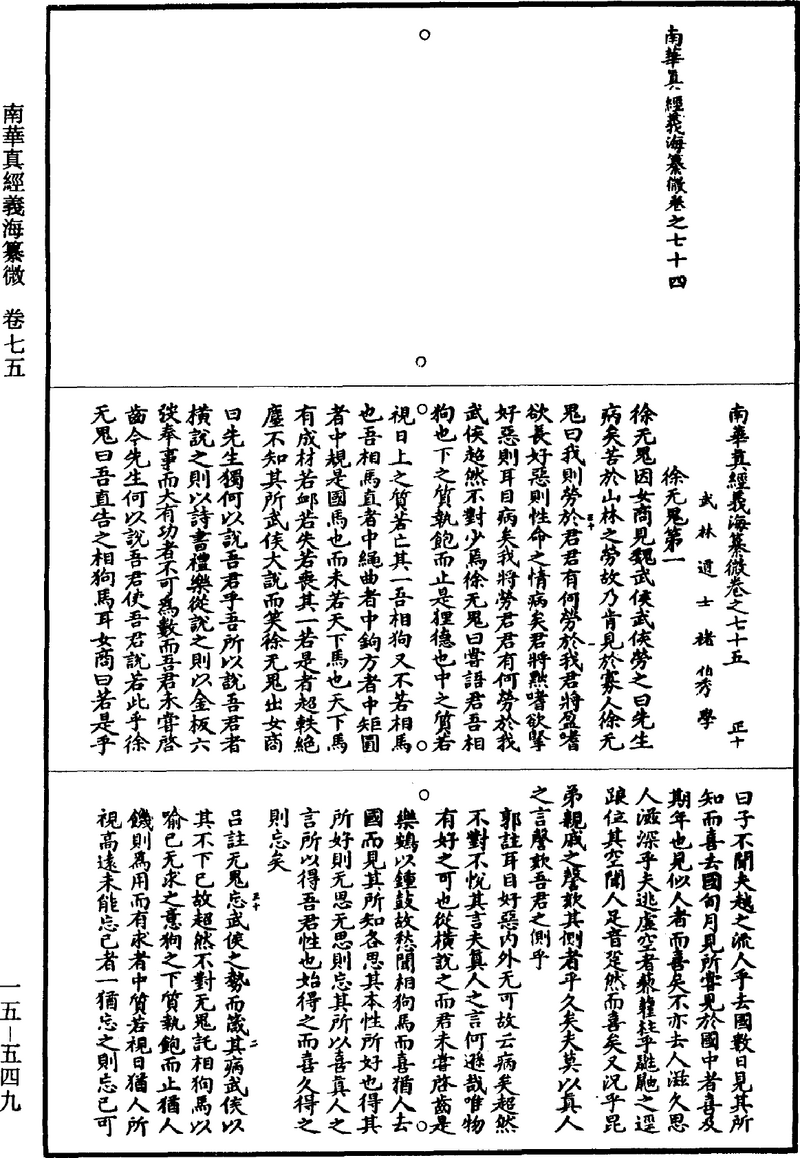 南華真經義海纂微 卷七五
一五—五四九
南華真經義海纂微卷之七十四
南華真經義海纂微卷之七十五 正十
武林道士褚伯秀學
徐无鬼第一
徐无鬼因女商見魏武侯武侯勞之曰先生
病矣苦於山林之勞故乃肯見於寡人徐无
鬼曰我則勞於君君有何勞於我君將盈嗜
欲長好惡則性命之情病矣君將黜嗜欲掔
好惡則耳目病矣我將勞君君有何勞於我
武侯超然不對少焉徐无鬼曰嘗語君吾相
狗也下之質執飽而止是狸德也中之質若
視日上之質若亡其一吾相狗又不若相馬
也吾相馬直者中繩曲者中鉤方者中矩圓
者中規是國馬也而未若天下馬也天下馬
有成材若卹若失若喪其一若是者超軼絕
塵不知其所武侯大說而笑徐无鬼出女商
曰先生獨何以說吾君乎吾所以說吾君者
橫說之則以詩書禮樂從說之則以金板六
弢奉事而大有功者不可為數而吾君未嘗啓
齒今先生何以說吾君使吾君說若此乎徐
无鬼曰吾直告之相狗馬耳女商曰若是乎
曰子不聞夫越之流人乎去國數日見其所
知而喜去國旬月見所嘗見於國中者喜及
期年也見似人者而喜矣不亦去人滋久思
人滋深乎夫逃虛空者藜藋柱乎鼪鼬之逕
踉位其空聞人足音跫然而喜矣又況乎昆
弟親戚之謦欬其側者乎久矣夫莫以真人
之言謦欬吾君之側乎
郭註耳目好惡內外无可故云病矣超然
不對不悅其言夫真人之言何遜哉唯物
有好之可也從橫說之而君未嘗啓齒是
樂鷃以鍾鼓故愁聞相狗馬而喜猶人去
國而見其所知各思其本性所好也得其
所好則无思无思則忘其所以喜真人之
言所以得吾君性也始得之而喜久得之
則忘矣
呂註无鬼忘武侯之勢而箴其病武侯以
其不下已故超然不對无鬼託相狗馬以
喻已无求之意狗之下質執飽而止猶人
饑則為用而有求者中質若視日猶人所
視高遠未能忘己者一猶忘之則忘己可